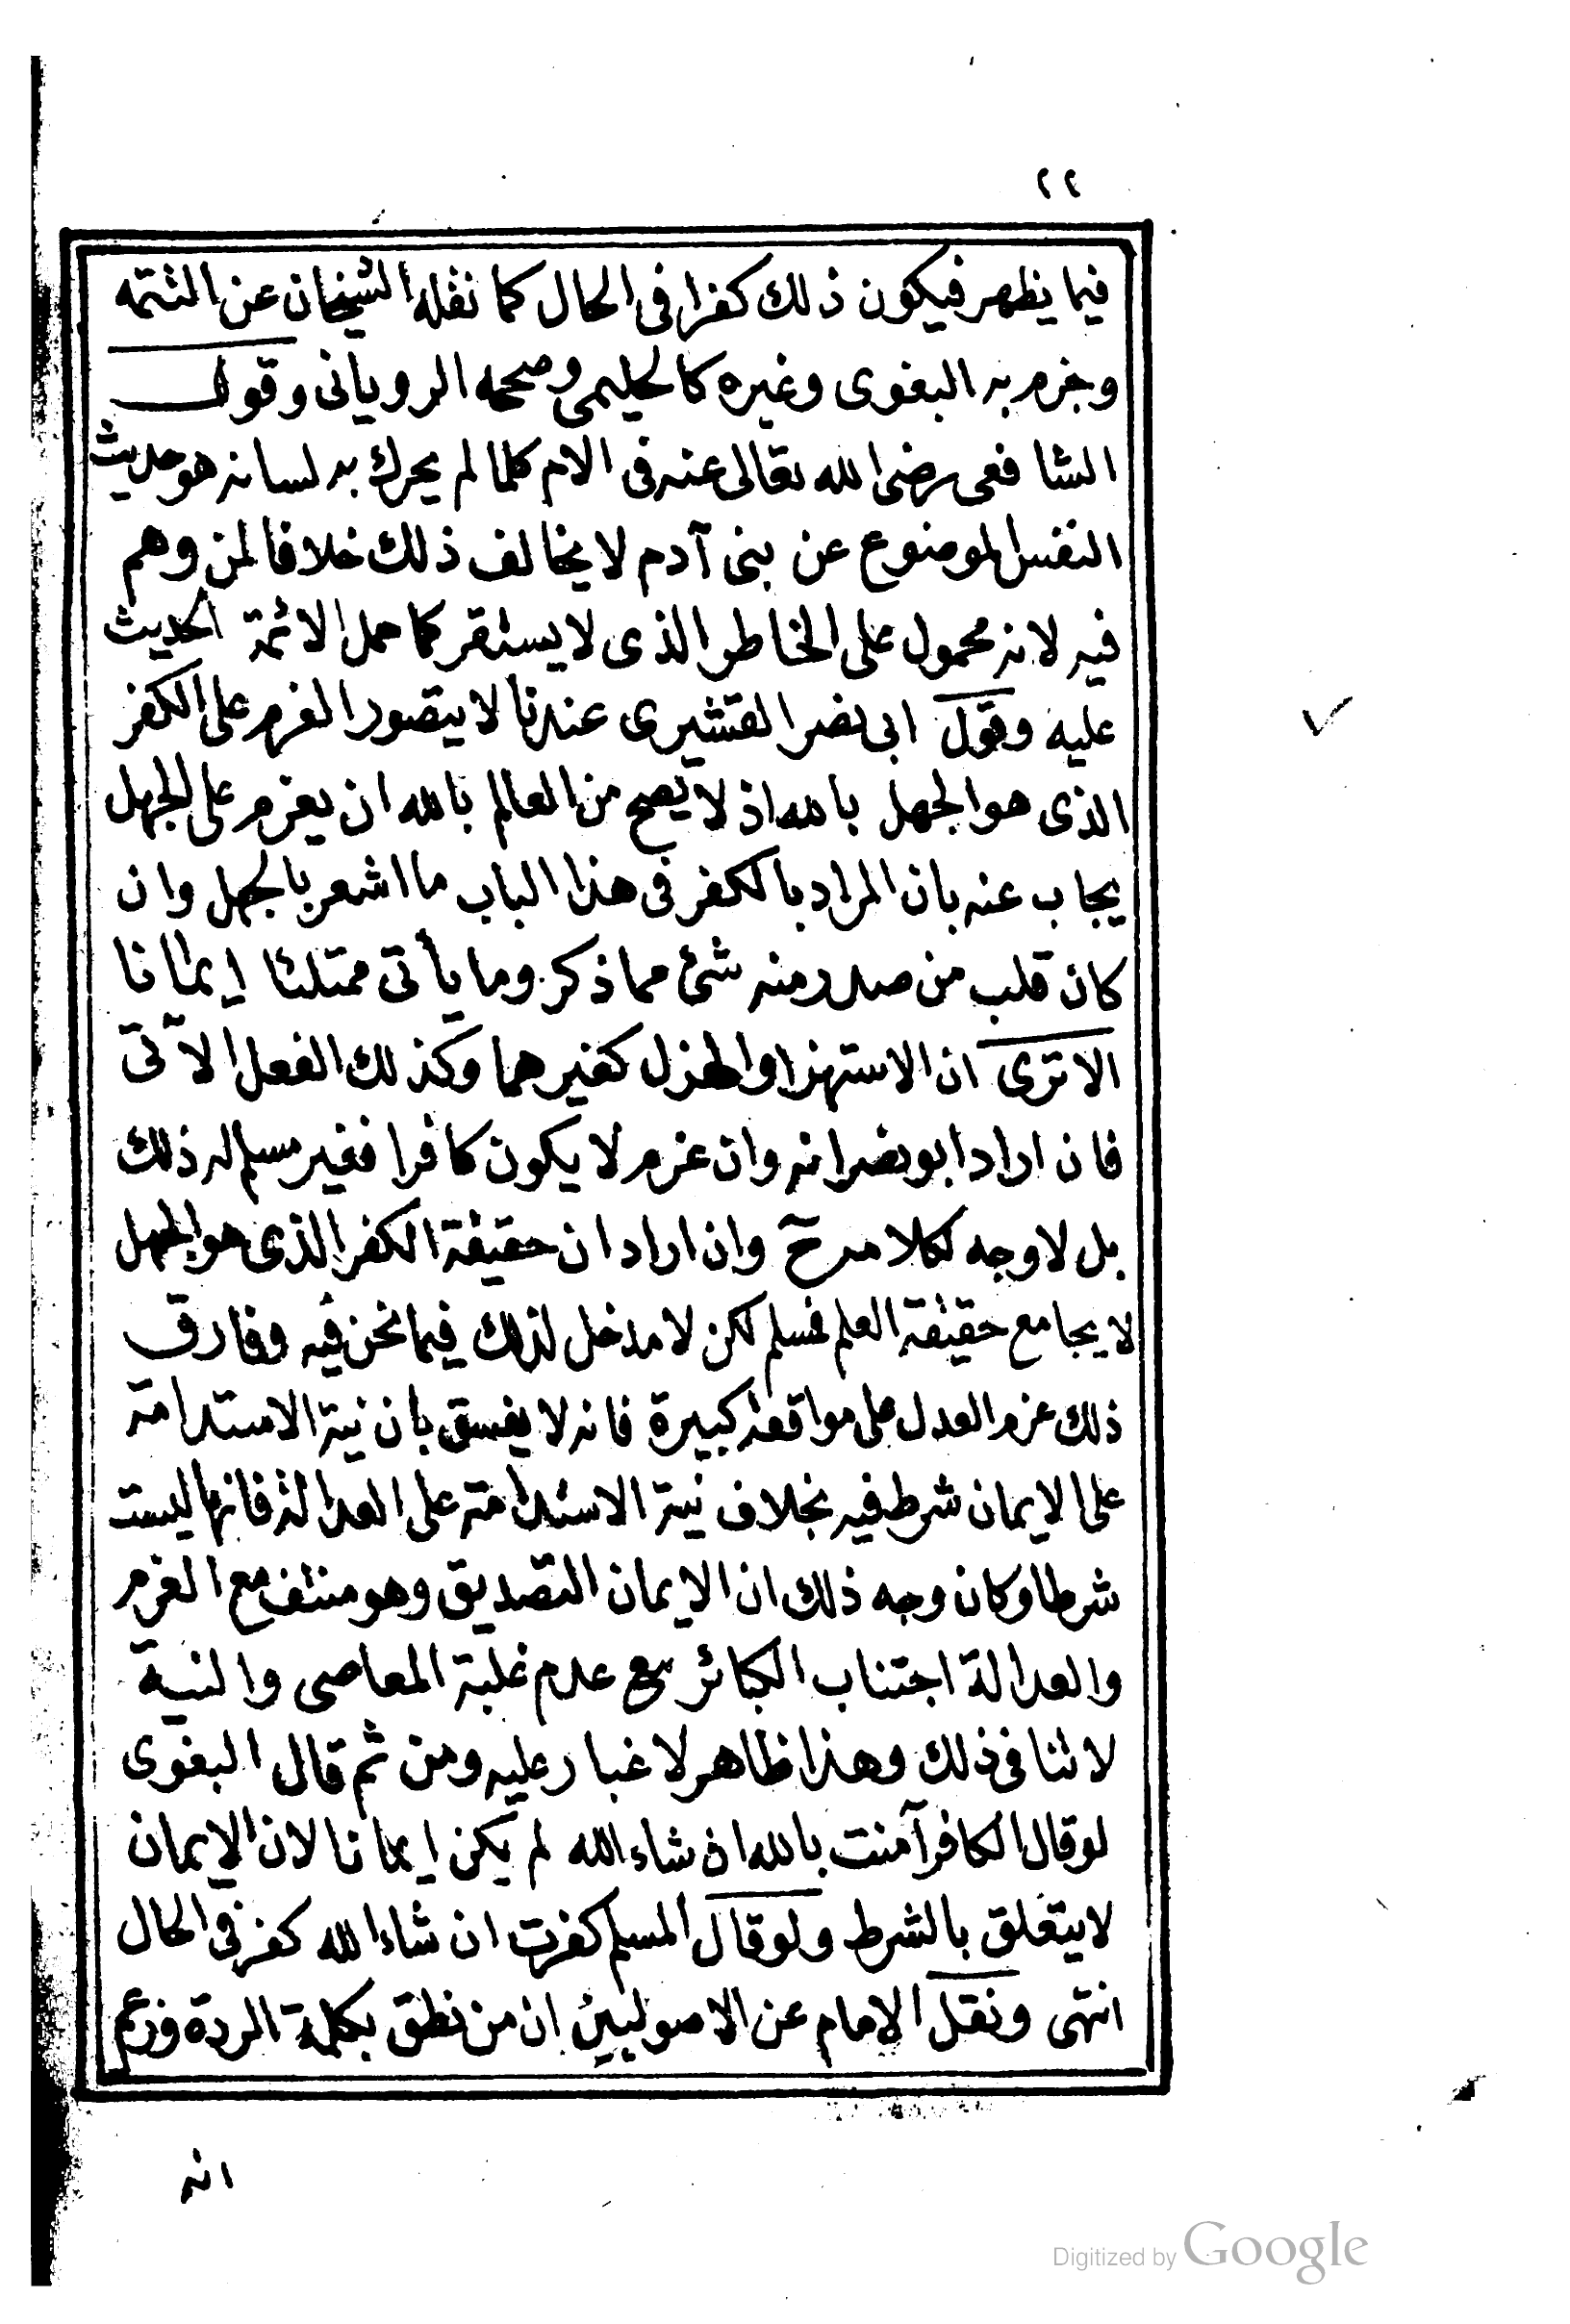 ٢٢
فيما يظهر فيكون ذلك كفرا فى الحال كما نقله الشيخان عن التتمه
وجزم به البغوى وغيره كالحليمى وصححه الرويانى وقول
الشافعى رضى الله تعالى عنه فى الام كلما لم يحرك به لسانه هو حديث
النفس الموضوع عن بنى آدم لا يخالف ذلك خلافا لمن وهم
فيه لانه محمول على الخاطر الذى لا يستقر كما حمل الائمة الحديث
عليه وقول ابى نصر القشيرى عندنا لا يتصور العزم على الكفر
الذى هو الجهل بالله اذ لا يصح من العالم بالله ان يعزم على الجهل
يجاب عنه بان المراد بالكفر فى هذا الباب ما اشعر بالجهل وان
كان قلب من صدر منه شئ مما ذكر وما يأتى ممتلئا إيمانا
الا ترى ان الاستهزا والهزل كغيرهما وكذلك الفعل الآتى
فان اراد ابو نصر انه وان عزم لا يكون كافرا فغير مسلم له ذلك
بل لا وجه لكلامه ح وان اراد ان حقيقة الكفر الذى هو الجهل
لا يجامع حقيقة العلم فمسلم لكن لا مدخل لذلك فيما نحن فيه وفارق
ذلك عزم العدل على مواقعة كبيرة فانه لا يفسق بان نية الاستدامة
على الايمان شرط فيه بخلاف نية الاستدامة على العدالة فانها ليست
شرطا وكان وجه ذلك ان الايمان التصديق وهو منتف مع العزم
والعدالة اجتناب الكبائر مع عدم غلبة المعاصى والنية
لا تنافى ذلك وهذا ظاهر لا غبار عليه ومن ثم قال البغوى
لو قال الكافر آمنت بالله ان شاء الله لم يكن ايمانا لان الايمان
لا يتعلق بالشرط ولو قال المسلم كفرت ان شاء الله كفر فى الحال
انتهى ونقل الامام عن الاصوليين ان من نطق بكلمة الردة وزعم
انه
Digitized by Google